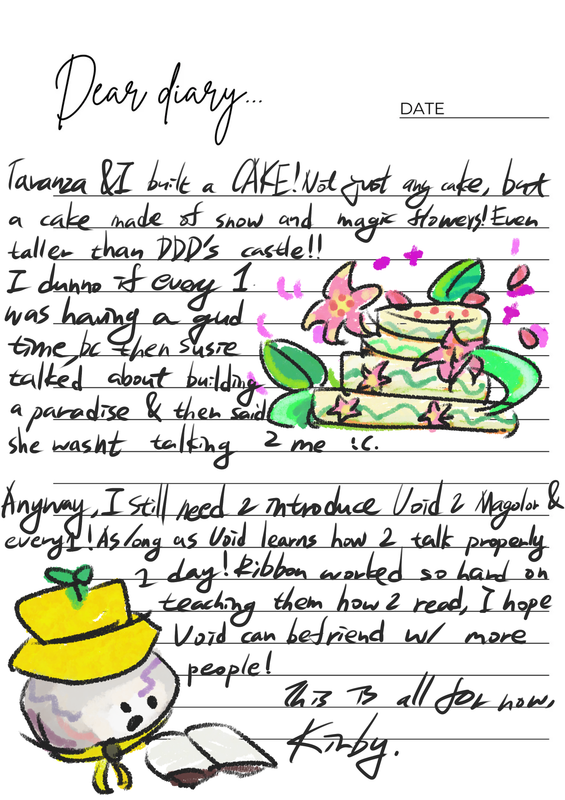 Dear diary...
DATE
Taranza & I built a CAKE! Not just any cake, but
a cake made of snow and magic flowers! Even
taller than DDD's castle!!
I dunno if every 1
was having a gud
time bc then Susie
talked about building
a paradise & then said
she wasnt talking 2 me :C.
Anyway, I still need 2 introduce Void 2 Magolor &
every1! As long as Void learns how 2 talk properly
1 day! Ribbon worked so hard on
teaching them how 2 read, I hope
Void can befriend w/ more
people!
This is all for now,
Kirby.